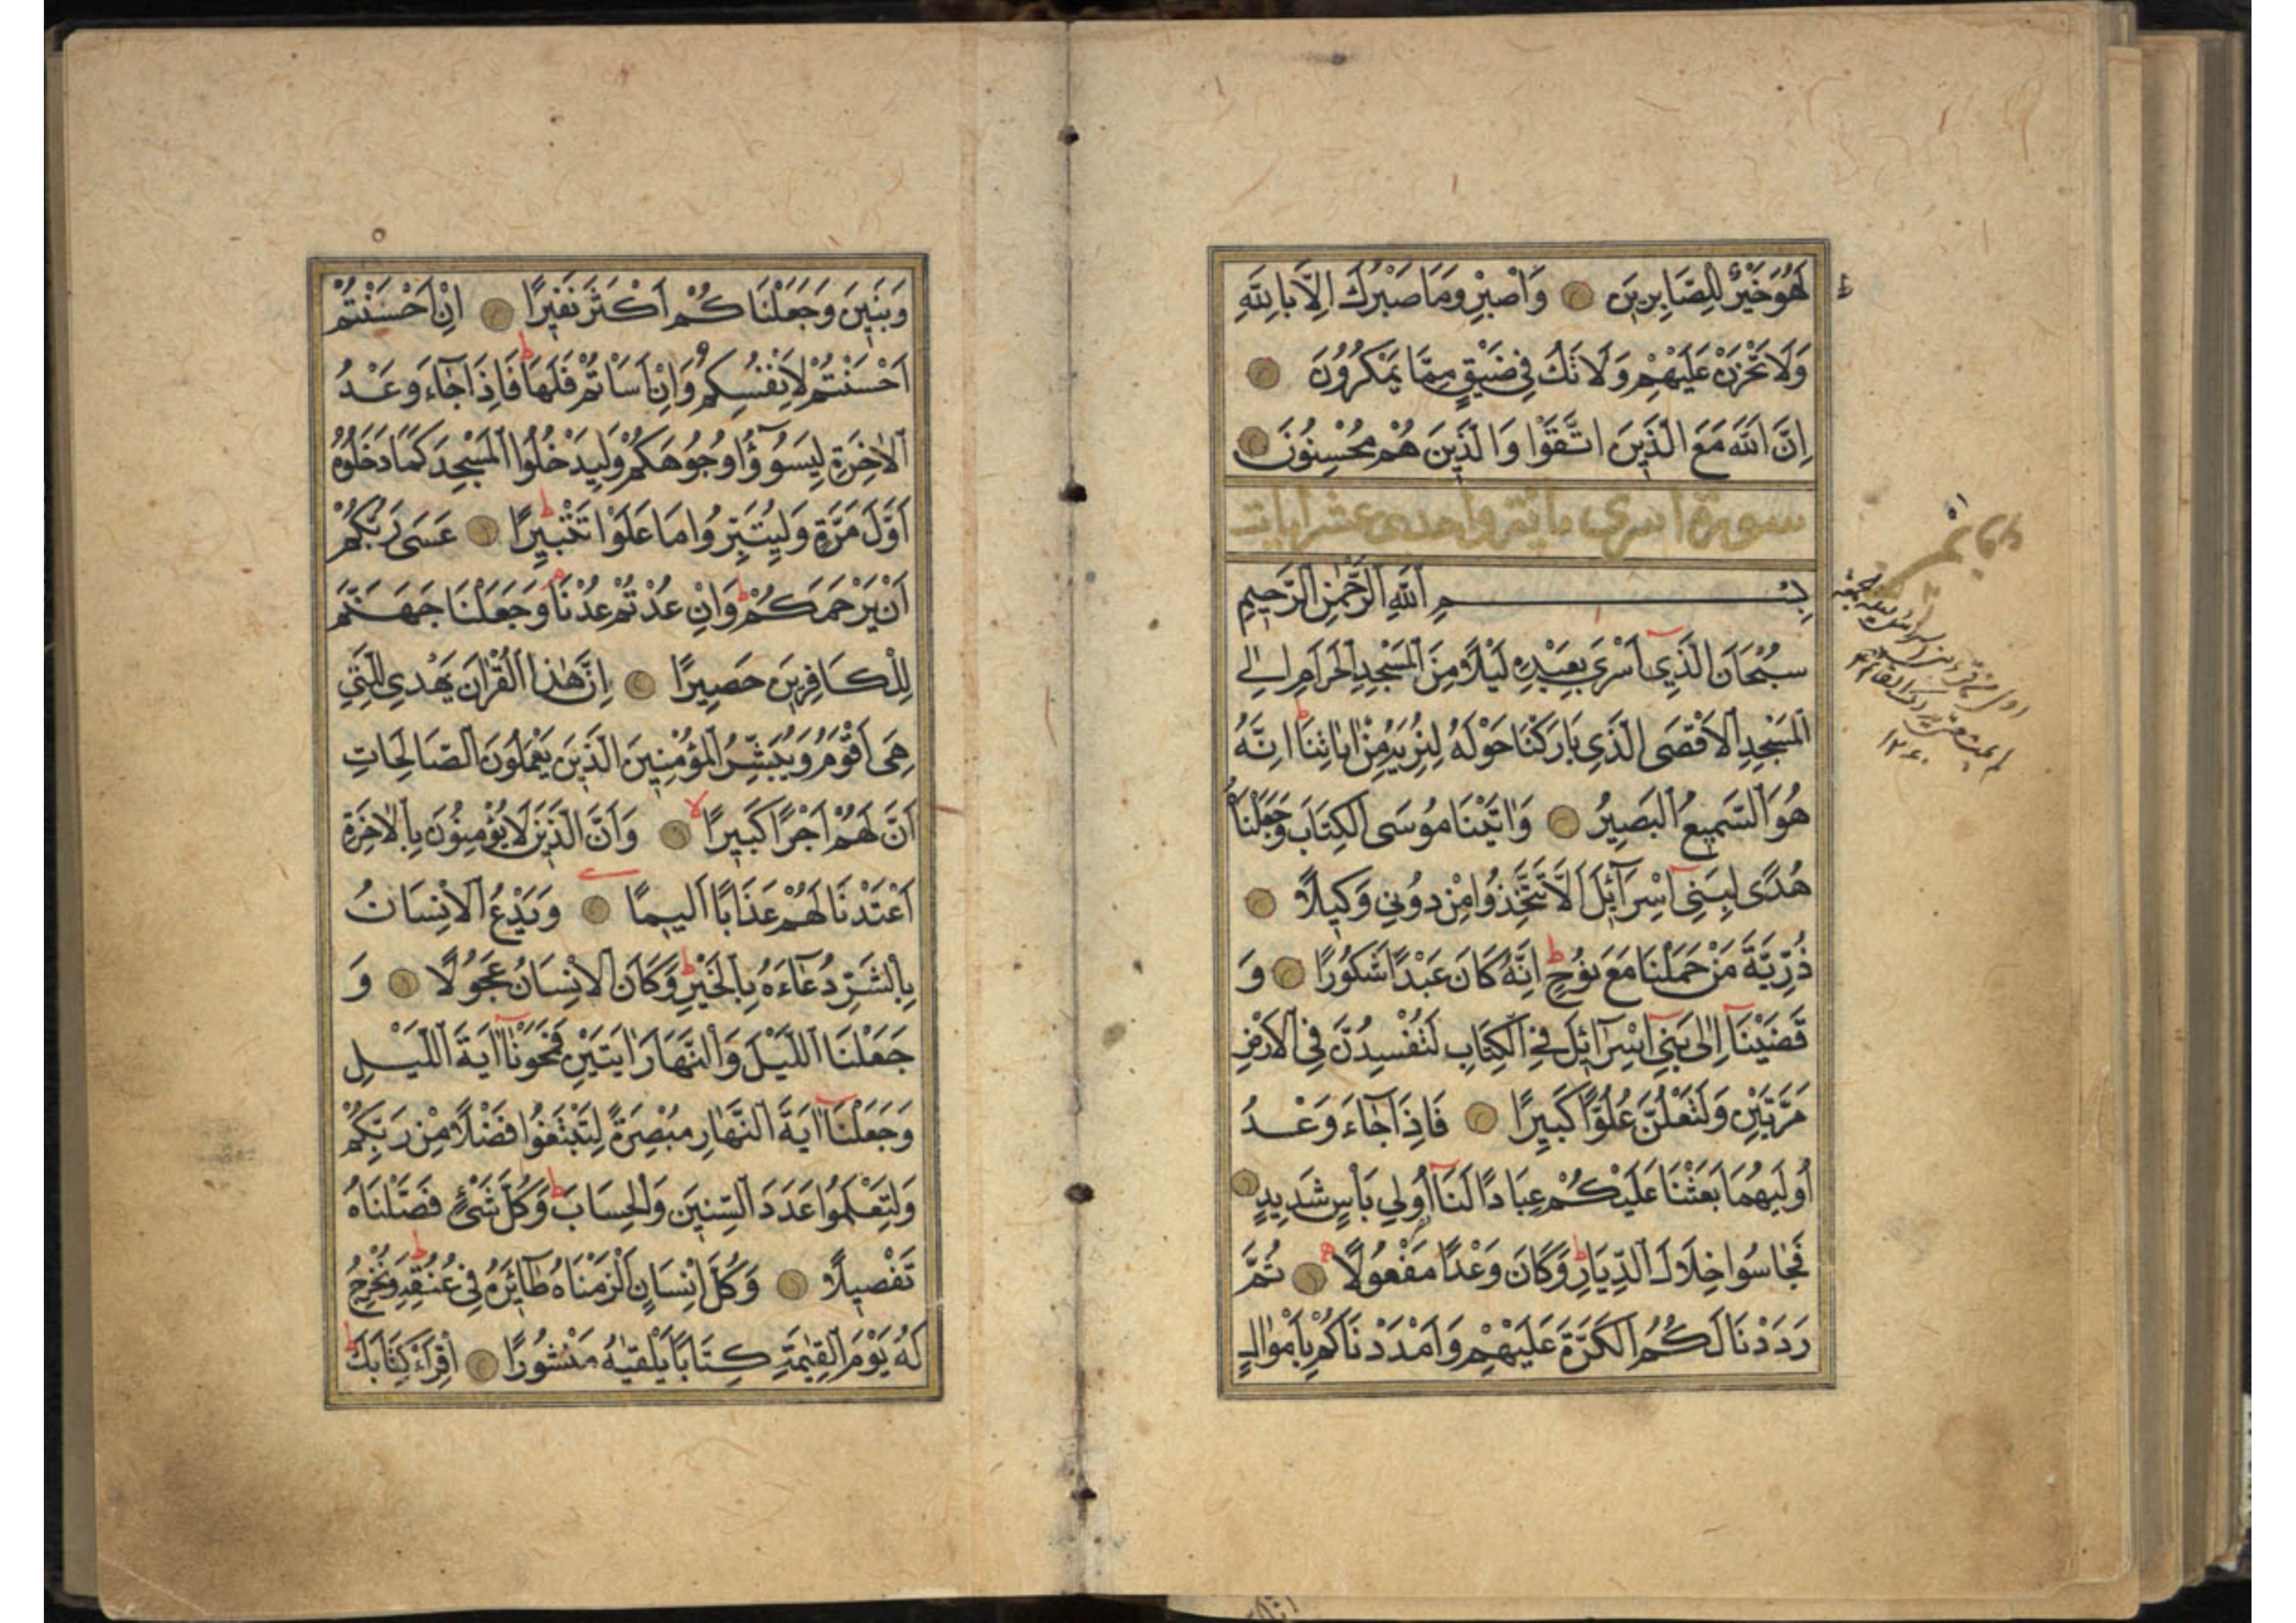 لَهُوَ خَيْرٌ لِلصَّابِرِينَ وَاصْبِرْ وَمَا صَبْرُكَ اِلَّا بِاللّٰهِ
وَلَا تَحْزَنْ عَلَيْهِمْ وَلَا تَكُ فِي ضَيْقٍ مِمَّا يَمْكُرُونَ
اِنَّ اللّٰهَ مَعَ الَّذِينَ اتَّقَوْا وَالَّذِينَ هُمْ مُحْسِنُونَ
سورة اسرى مائة واحدى عشر ايات
بِسْمِ اللّٰهِ الرَّحْمٰنِ الرَّحِيمِ
سُبْحَانَ الَّذِي اَسْرَى بِعَبْدِهِ لَيْلًا مِنَ الْمَسْجِدِ الْحَرَامِ اِلَى
الْمَسْجِدِ الْاَقْصَى الَّذِي بَارَكْنَا حَوْلَهُ لِنُرِيَهُ مِنْ اٰيَاتِنَا اِنَّهُ
هُوَ السَّمِيعُ الْبَصِيرُ وَاٰتَيْنَا مُوسَى الْكِتَابَ وَجَعَلْنَاهُ
هُدًى لِبَنِي اِسْرَائِلَ اَلَّا تَتَّخِذُوا مِنْ دُونِي وَكِيلًا
ذُرِّيَّةَ مَنْ حَمَلْنَا مَعَ نُوحٍ اِنَّهُ كَانَ عَبْدًا شَكُورًا وَ
قَضَيْنَا اِلٰى بَنِي اِسْرَائِلَ فِي الْكِتَابِ لَتُفْسِدُنَّ فِي الْاَرْضِ
مَرَّتَيْنِ وَلَتَعْلُنَّ عُلُوًّا كَبِيرًا فَاِذَا جَاءَ وَعْدُ
اُولٰيهُمَا بَعَثْنَا عَلَيْكُمْ عِبَادًا لَنَا اُولِي بَاْسٍ شَدِيدٍ
فَجَاسُوا خِلَالَ الدِّيَارِ وَكَانَ وَعْدًا مَفْعُولًا ثُمَّ
رَدَدْنَا لَكُمُ الْكَرَّةَ عَلَيْهِمْ وَاَمْدَدْنَاكُمْ بِاَمْوَالٍ
وَبَنِينَ وَجَعَلْنَاكُمْ اَكْثَرَ نَفِيرًا اِنْ اَحْسَنْتُمْ
اَحْسَنْتُمْ لِاَنْفُسِكُمْ وَاِنْ اَسَاْتُمْ فَلَهَا فَاِذَا جَاءَ وَعْدُ
الْاٰخِرَةِ لِيَسُوؤُا وُجُوهَكُمْ وَلِيَدْخُلُوا الْمَسْجِدَ كَمَا دَخَلُوهُ
اَوَّلَ مَرَّةٍ وَلِيُتَبِّرُوا مَا عَلَوْا تَتْبِيرًا عَسَى رَبُّكُمْ
اَنْ يَرْحَمَكُمْ وَاِنْ عُدْتُمْ عُدْنَا وَجَعَلْنَا جَهَنَّمَ
لِلْكَافِرِينَ حَصِيرًا اِنَّ هٰذَا الْقُرْاٰنَ يَهْدِي لِلَّتِي
هِيَ اَقْوَمُ وَيُبَشِّرُ الْمُؤْمِنِينَ الَّذِينَ يَعْمَلُونَ الصَّالِحَاتِ
اَنَّ لَهُمْ اَجْرًا كَبِيرًا وَاَنَّ الَّذِينَ لَا يُؤْمِنُونَ بِالْاٰخِرَةِ
اَعْتَدْنَا لَهُمْ عَذَابًا اَلِيمًا وَيَدْعُ الْاِنْسَانُ
بِالشَّرِّ دُعَاءَهُ بِالْخَيْرِ وَكَانَ الْاِنْسَانُ عَجُولًا وَ
جَعَلْنَا اللَّيْلَ وَالنَّهَارَ اٰيَتَيْنِ فَمَحَوْنَا اٰيَةَ اللَّيْلِ
وَجَعَلْنَا اٰيَةَ النَّهَارِ مُبْصِرَةً لِتَبْتَغُوا فَضْلًا مِنْ رَبِّكُمْ
وَلِتَعْلَمُوا عَدَدَ السِّنِينَ وَالْحِسَابَ وَكُلَّ شَيْءٍ فَصَّلْنَاهُ
تَفْصِيلًا وَكُلَّ اِنْسَانٍ اَلْزَمْنَاهُ طَائِرَهُ فِي عُنُقِهِ وَنُخْرِجُ
لَهُ يَوْمَ الْقِيٰمَةِ كِتَابًا يَلْقٰيهُ مَنْشُورًا اِقْرَاْ كِتَابَكَ